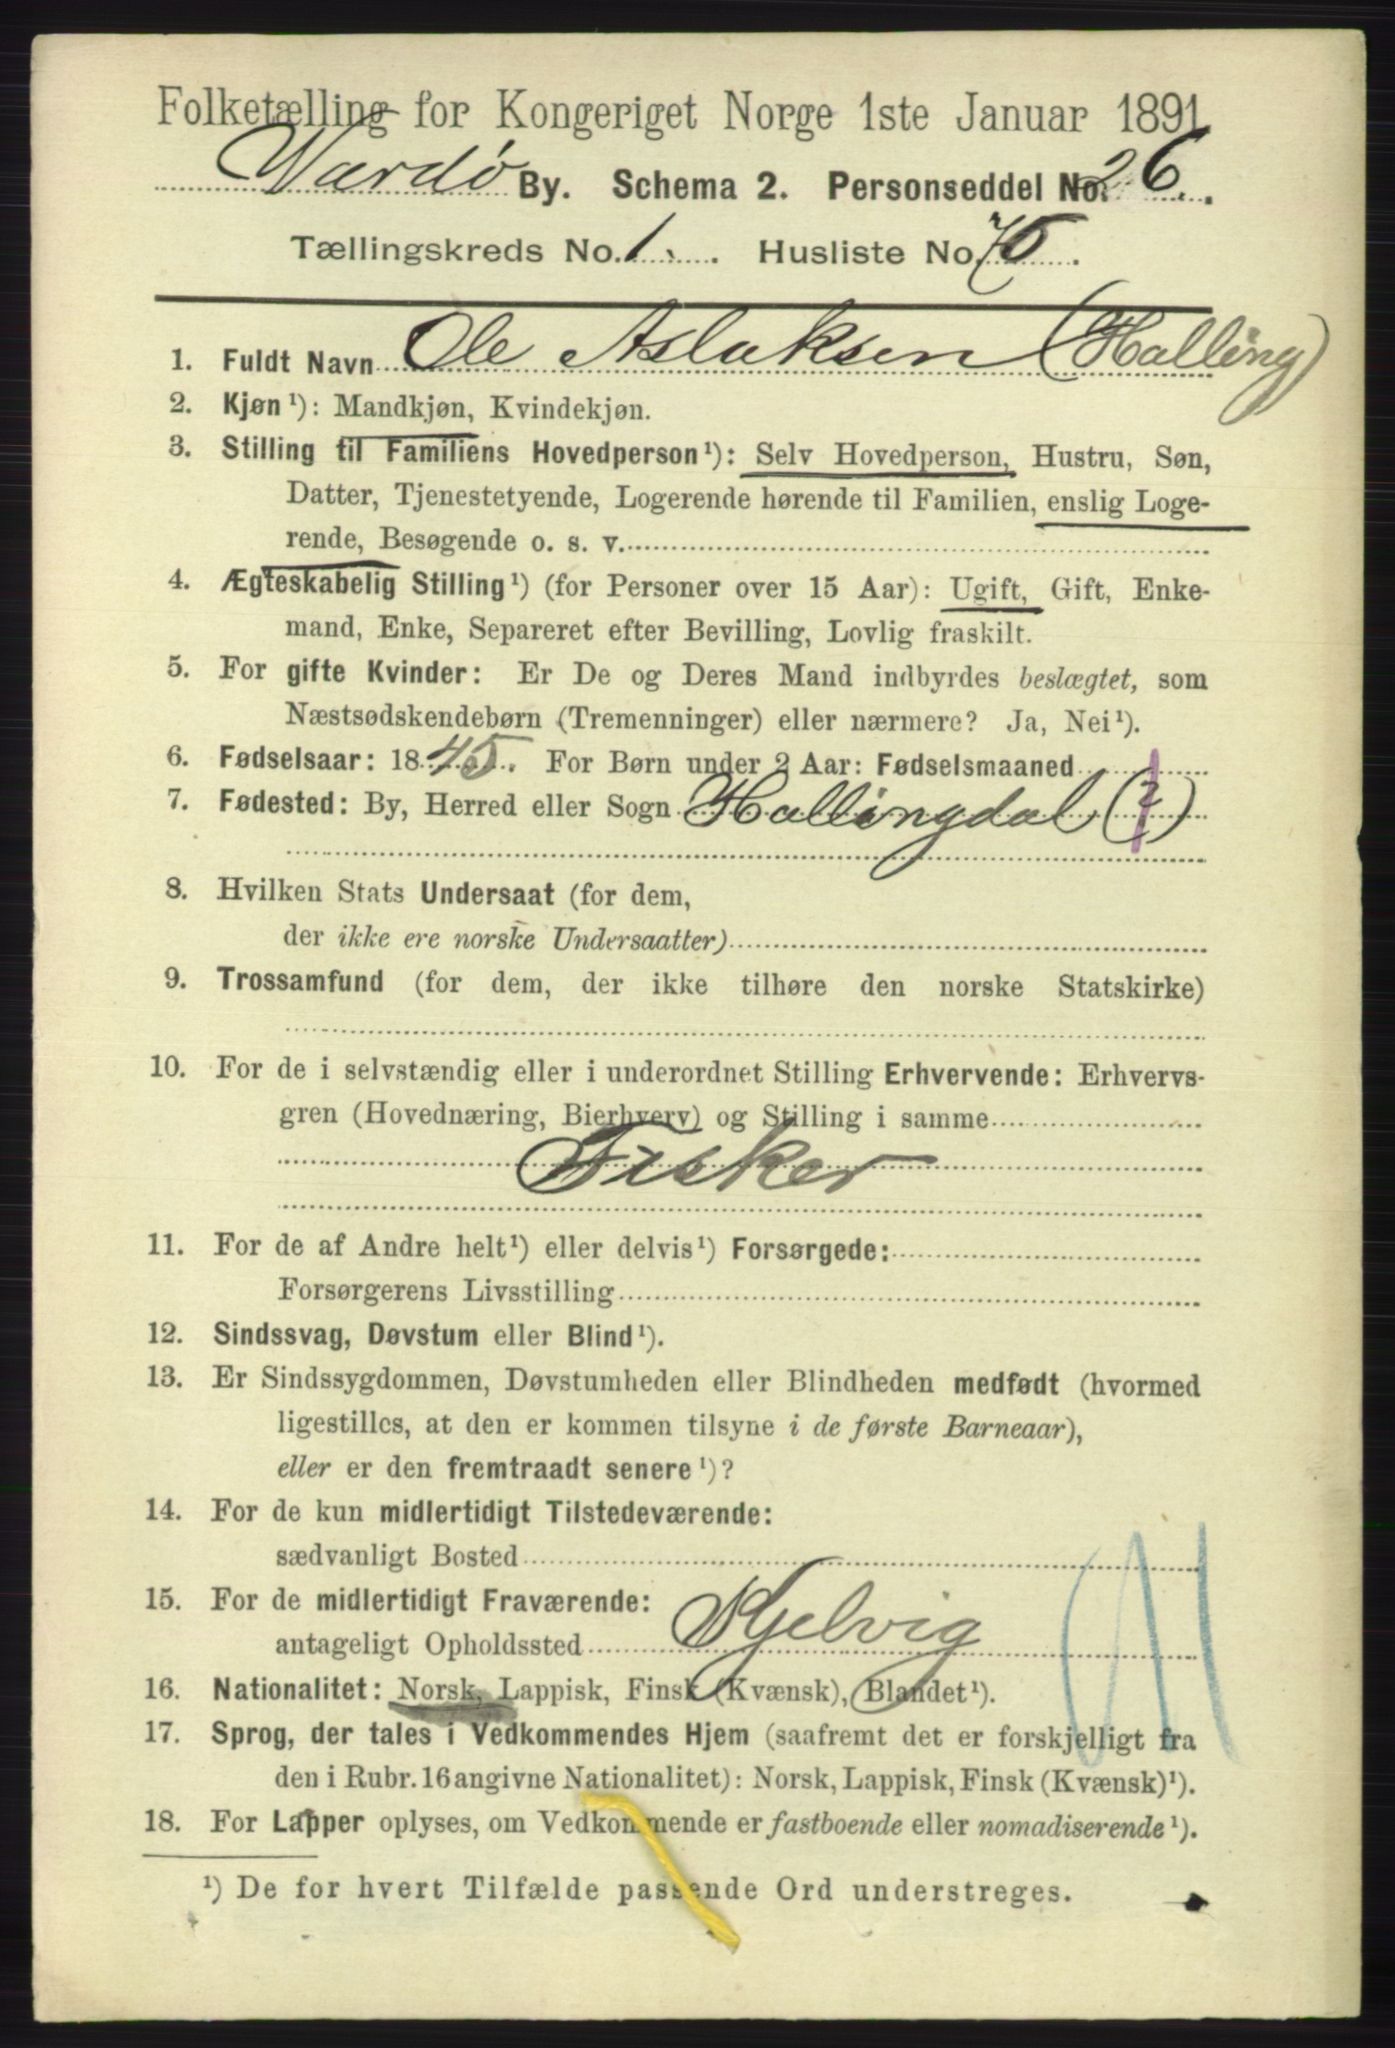 Folketælling for Kongeriget Norge 1ste Januar 1891
Vardø By. Schema 2. Personseddel No. 26.
Tællingskreds No. 1. Husliste No. 75.
1. Fuldt Navn Ole Aslaksen (Halling)
2. Kjøn¹): Mandkjøn, Kvindekjøn.
3. Stilling til Familiens Hovedperson¹): Selv Hovedperson, Hustru, Søn,
Datter, Tjenestetyende, Logerende hørende til Familien, enslig Loge-
rende, Besøgende o. s. v.
4. Ægteskabelig Stilling¹) (for Personer over 15 Aar): Ugift, Gift, Enke-
mand, Enke, Separeret efter Bevilling, Lovlig fraskilt.
5. For gifte Kvinder: Er De og Deres Mand indbyrdes beslægtet, som
Næstsødskendebørn (Tremenninger) eller nærmere? Ja, Nei¹).
6. Fødselsaar: 1845. For Børn under 2 Aar: Fødselsmaaned
7. Fødested: By, Herred eller Sogn Hallingdal (?)
8. Hvilken Stats Undersaat (for dem,
der ikke ere norske Undersaatter)
9. Trossamfund (for dem, der ikke tilhøre den norske Statskirke)
10. For de i selvstændig eller i underordnet Stilling Erhvervende: Erhvervs-
gren (Hovednæring, Bierhverv) og Stilling i samme
Fisker
11. For de af Andre helt¹) eller delvis¹) Forsørgede:
Forsørgerens Livsstilling
12. Sindssvag, Døvstum eller Blind¹).
13. Er Sindssygdommen, Døvstumheden eller Blindheden medfødt (hvormed
ligestilles, at den er kommen tilsyne i de første Barneaar),
eller er den fremtraadt senere¹)?
14. For de kun midlertidigt Tilstedeværende:
sædvanligt Bosted
15. For de midlertidigt Fraværende:
antageligt Opholdssted Kjelvig
16. Nationalitet: Norsk, Lappisk, Finsk (Kvænsk), Blandet¹).
17. Sprog, der tales i Vedkommendes Hjem (saafremt det er forskjelligt fra
den i Rubr. 16 angivne Nationalitet): Norsk, Lappisk, Finsk (Kvænsk)¹).
18. For Lapper oplyses, om Vedkommende er fastboende eller nomadiserende¹).
¹) De for hvert Tilfælde passende Ord understreges.